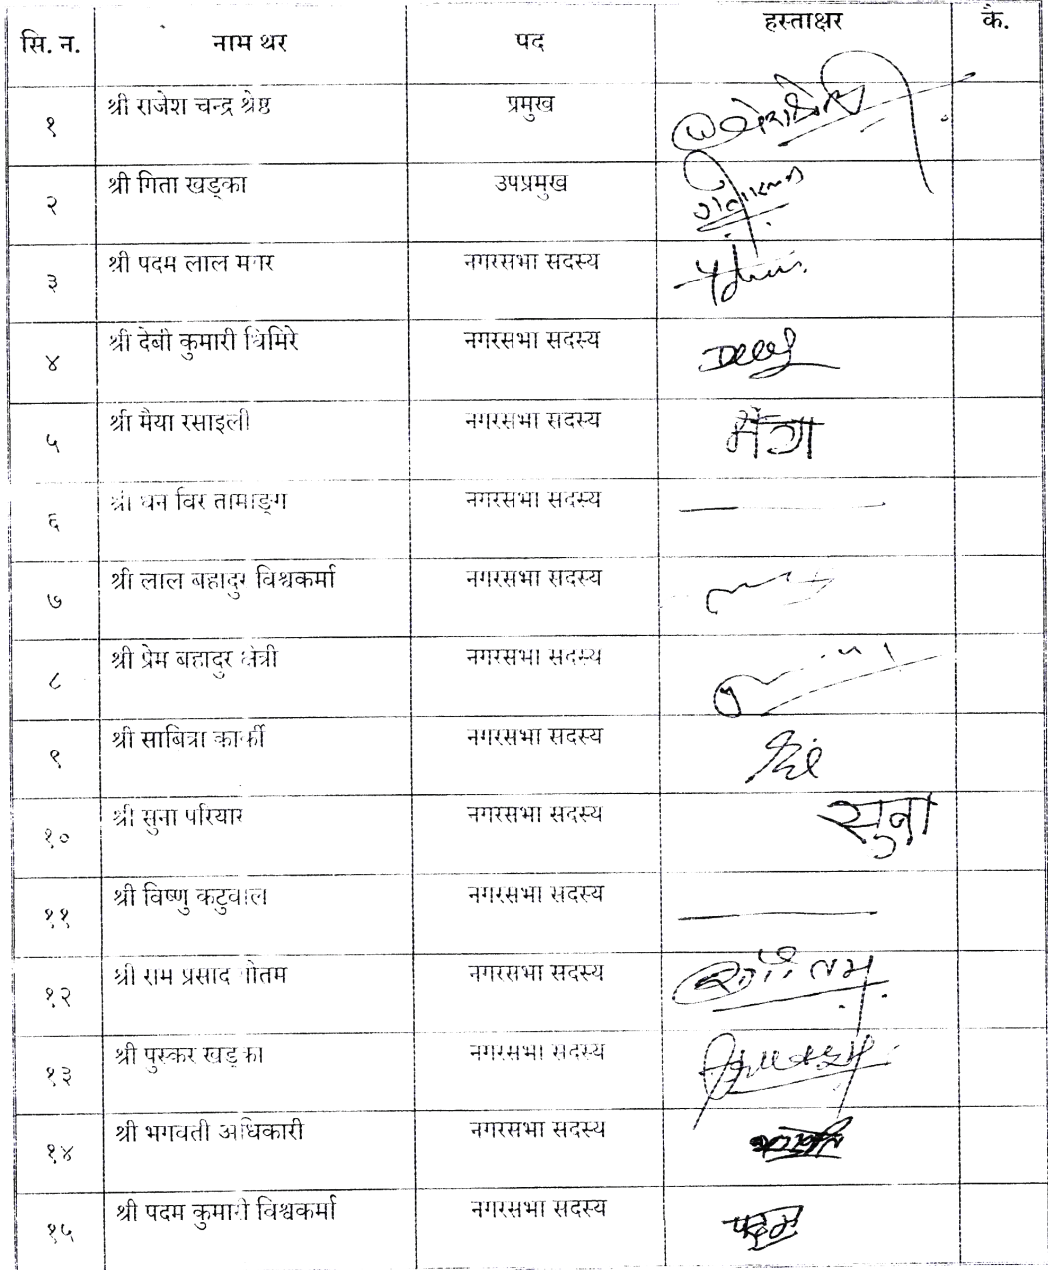 सि. न. नाम थर पद हस्ताक्षर कै.
१ श्री राजेश चन्द्र श्रेष्ठ प्रमुख
२ श्री गिता खड्का उपप्रमुख
३ श्री पदम लाल मगर नगरसभा सदस्य
४ श्री देबी कुमारी घिमिरे नगरसभा सदस्य
५ श्री मैया रसाइली नगरसभा सदस्य
६ श्री धन विर तामाङ्ग नगरसभा सदस्य
७ श्री लाल बहादुर विश्वकर्मा नगरसभा सदस्य
८ श्री प्रेम बहादुर क्षेत्री नगरसभा सदस्य
९ श्री साबित्रा कार्की नगरसभा सदस्य
१० श्री सुना परियार नगरसभा सदस्य सुना
११ श्री विष्णु कटुवाल नगरसभा सदस्य
१२ श्री राम प्रसाद गौतम नगरसभा सदस्य
१३ श्री पुस्कर खड्का नगरसभा सदस्य
१४ श्री भगवती अधिकारी नगरसभा सदस्य
१५ श्री पदम कुमारी विश्वकर्मा नगरसभा सदस्य पदम